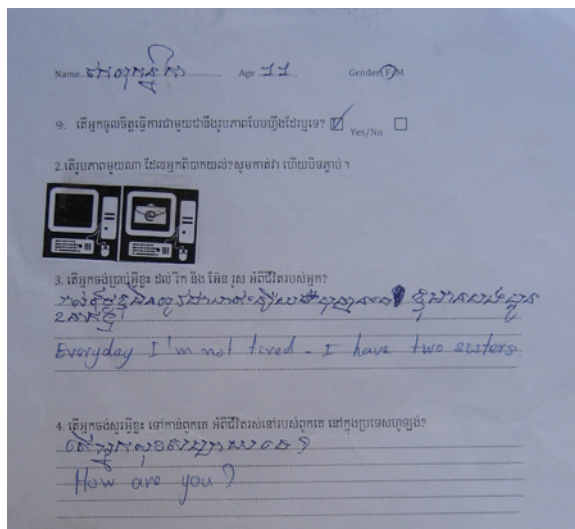 Name Age 11 Gender F/M
១. តើអ្នកចូលចិត្តធ្វើការជាមួយជានឹងរូបភាពបែបហ្នឹងដែរឬទេ? Yes/No
2.តើរូបភាពមួយណា ដែលអ្នកពិបាកយល់?សូមកាត់វា ហើយបិទភ្ជាប់ ។
3. តើអ្នកចង់ប្រាប់អ្វីខ្លះ ដល់ រីក និង អ៊ែន រូស អំពីជីវិតរបស់អ្នក?
Everyday I'm not tired - I have two sisters.
4. តើអ្នកចង់សួរអ្វីខ្លះ ទៅកាន់ពួកគេ អំពីជីវិតរស់នៅរបស់ពួកគេ នៅក្នុងប្រទេសហូឡង់?
តើអ្នកសុខសប្បាយទេ?
How are you?